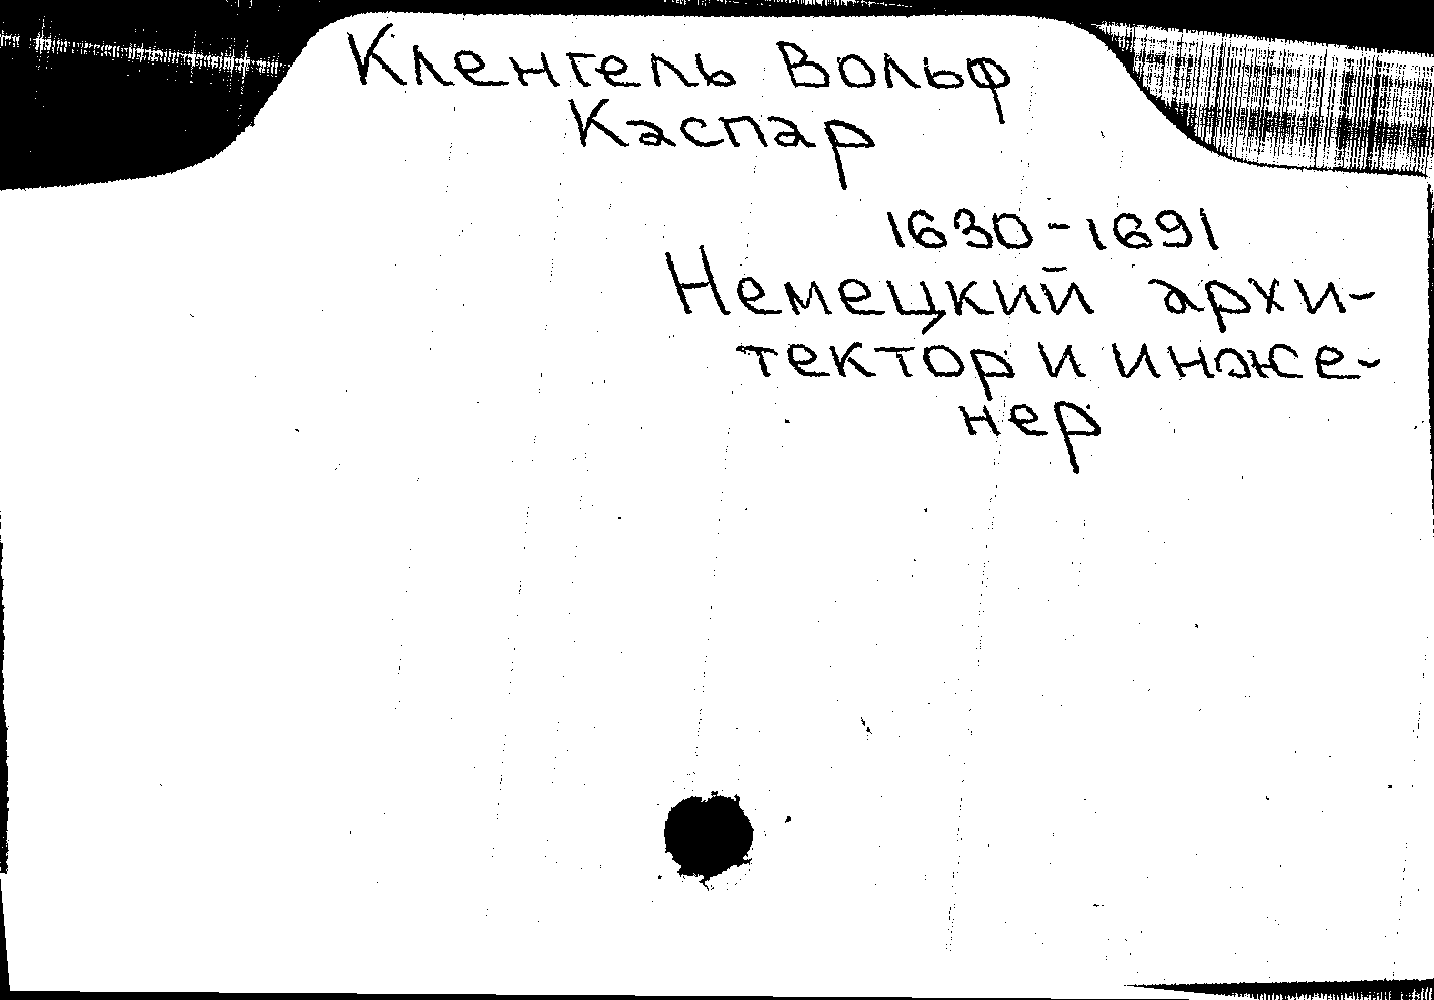 Кленгель Вольф
Каспар
1630-1691
Немецкий архи-
тектор и инже-
нер